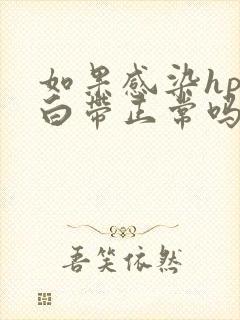 如果感染hp
白带正常吗
吾笑依然